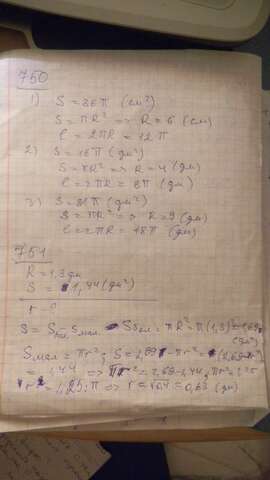 750
1) S = 36π (см²)
S = πR² => R = 6 (см)
C = 2πR = 12π
2) S = 16π (дм²)
S = πR² => R = 4 (дм)
C = 2πR = 8π (дм)
3) S = 81π (дм²)
S = πR² => R = 9 (дм)
C = 2πR = 18π (дм)
751
R = 1,3 дм
S = 1,44 (дм²)
r - ?
S = Sбол. Sмал. Sбол. = πR² = π(1,3)² = 1,69π
(дм²)
Sмал = πr²; S = 1,69π - πr² =
= 1,44 => πr² =
r² = π => r = (дм)